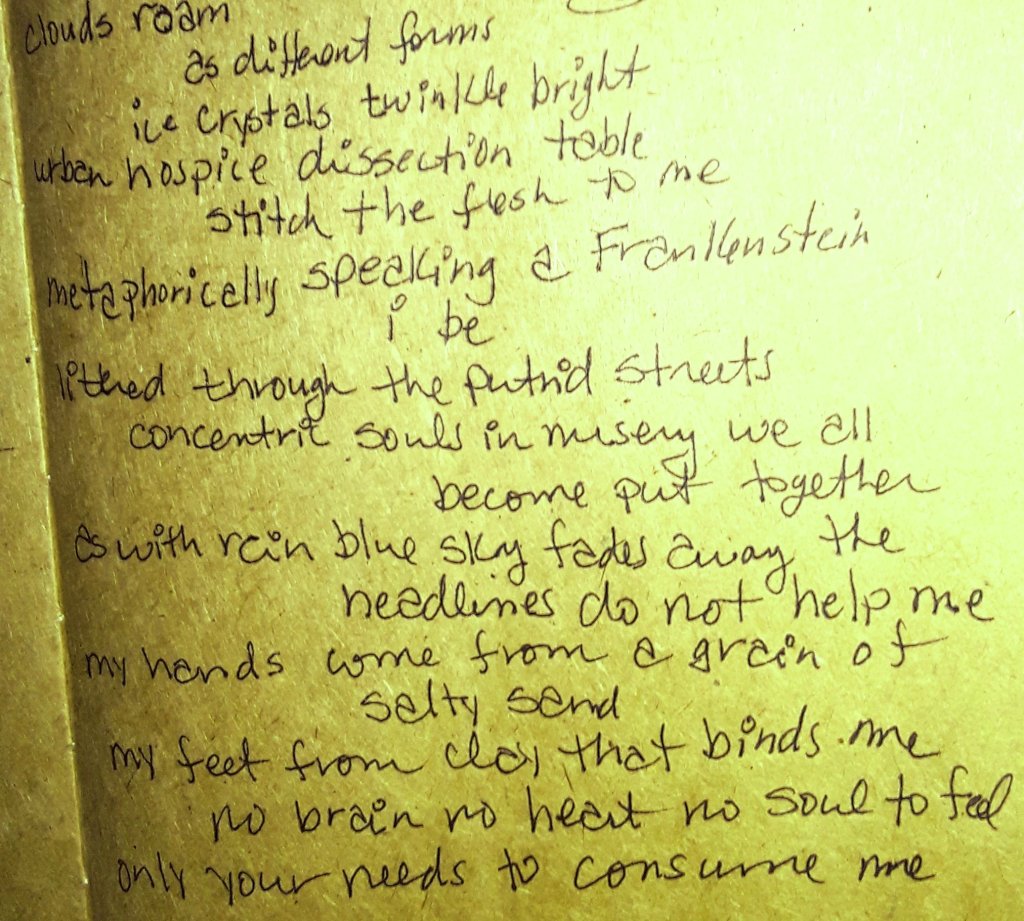 clouds roam
as different forms
ice crystals twinkle bright
urban hospice dissection table
stitch the flesh to me
metaphorically speaking a Frankenstein
i be
through the putrid streets
concentric souls in misery we all
become put together
as with rain blue sky fades away the
headlines do not help me
my hands come from a grain of
salty sand
my feet from clay that binds me
no brain no heart no soul to feel
only your needs to consume me